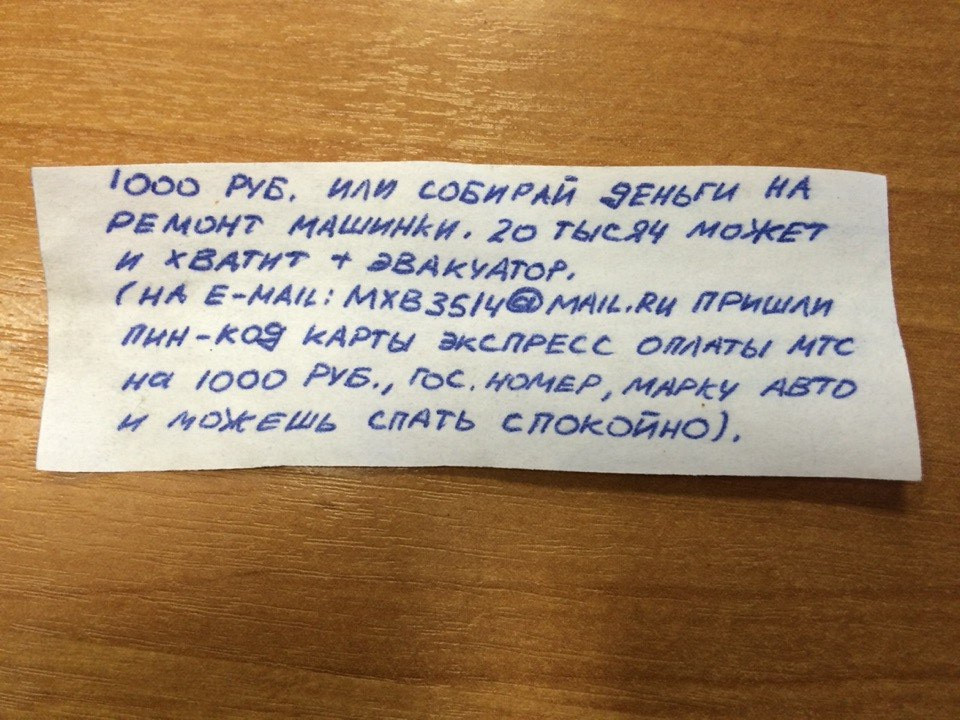 1000 РУБ. ИЛИ СОБИРАЙ ДЕНЬГИ НА
РЕМОНТ МАШИНКИ. 20 ТЫСЯЧ МОЖЕТ
И ХВАТИТ + ЭВАКУАТОР.
(НА E-MAIL: MXB3514@MAIL.RU ПРИШЛИ
ПИН-КОД КАРТЫ ЭКСПРЕСС ОПЛАТЫ МТС
НА 1000 РУБ., ГОС. НОМЕР, МАРКУ АВТО
И МОЖЕШЬ СПАТЬ СПОКОЙНО).